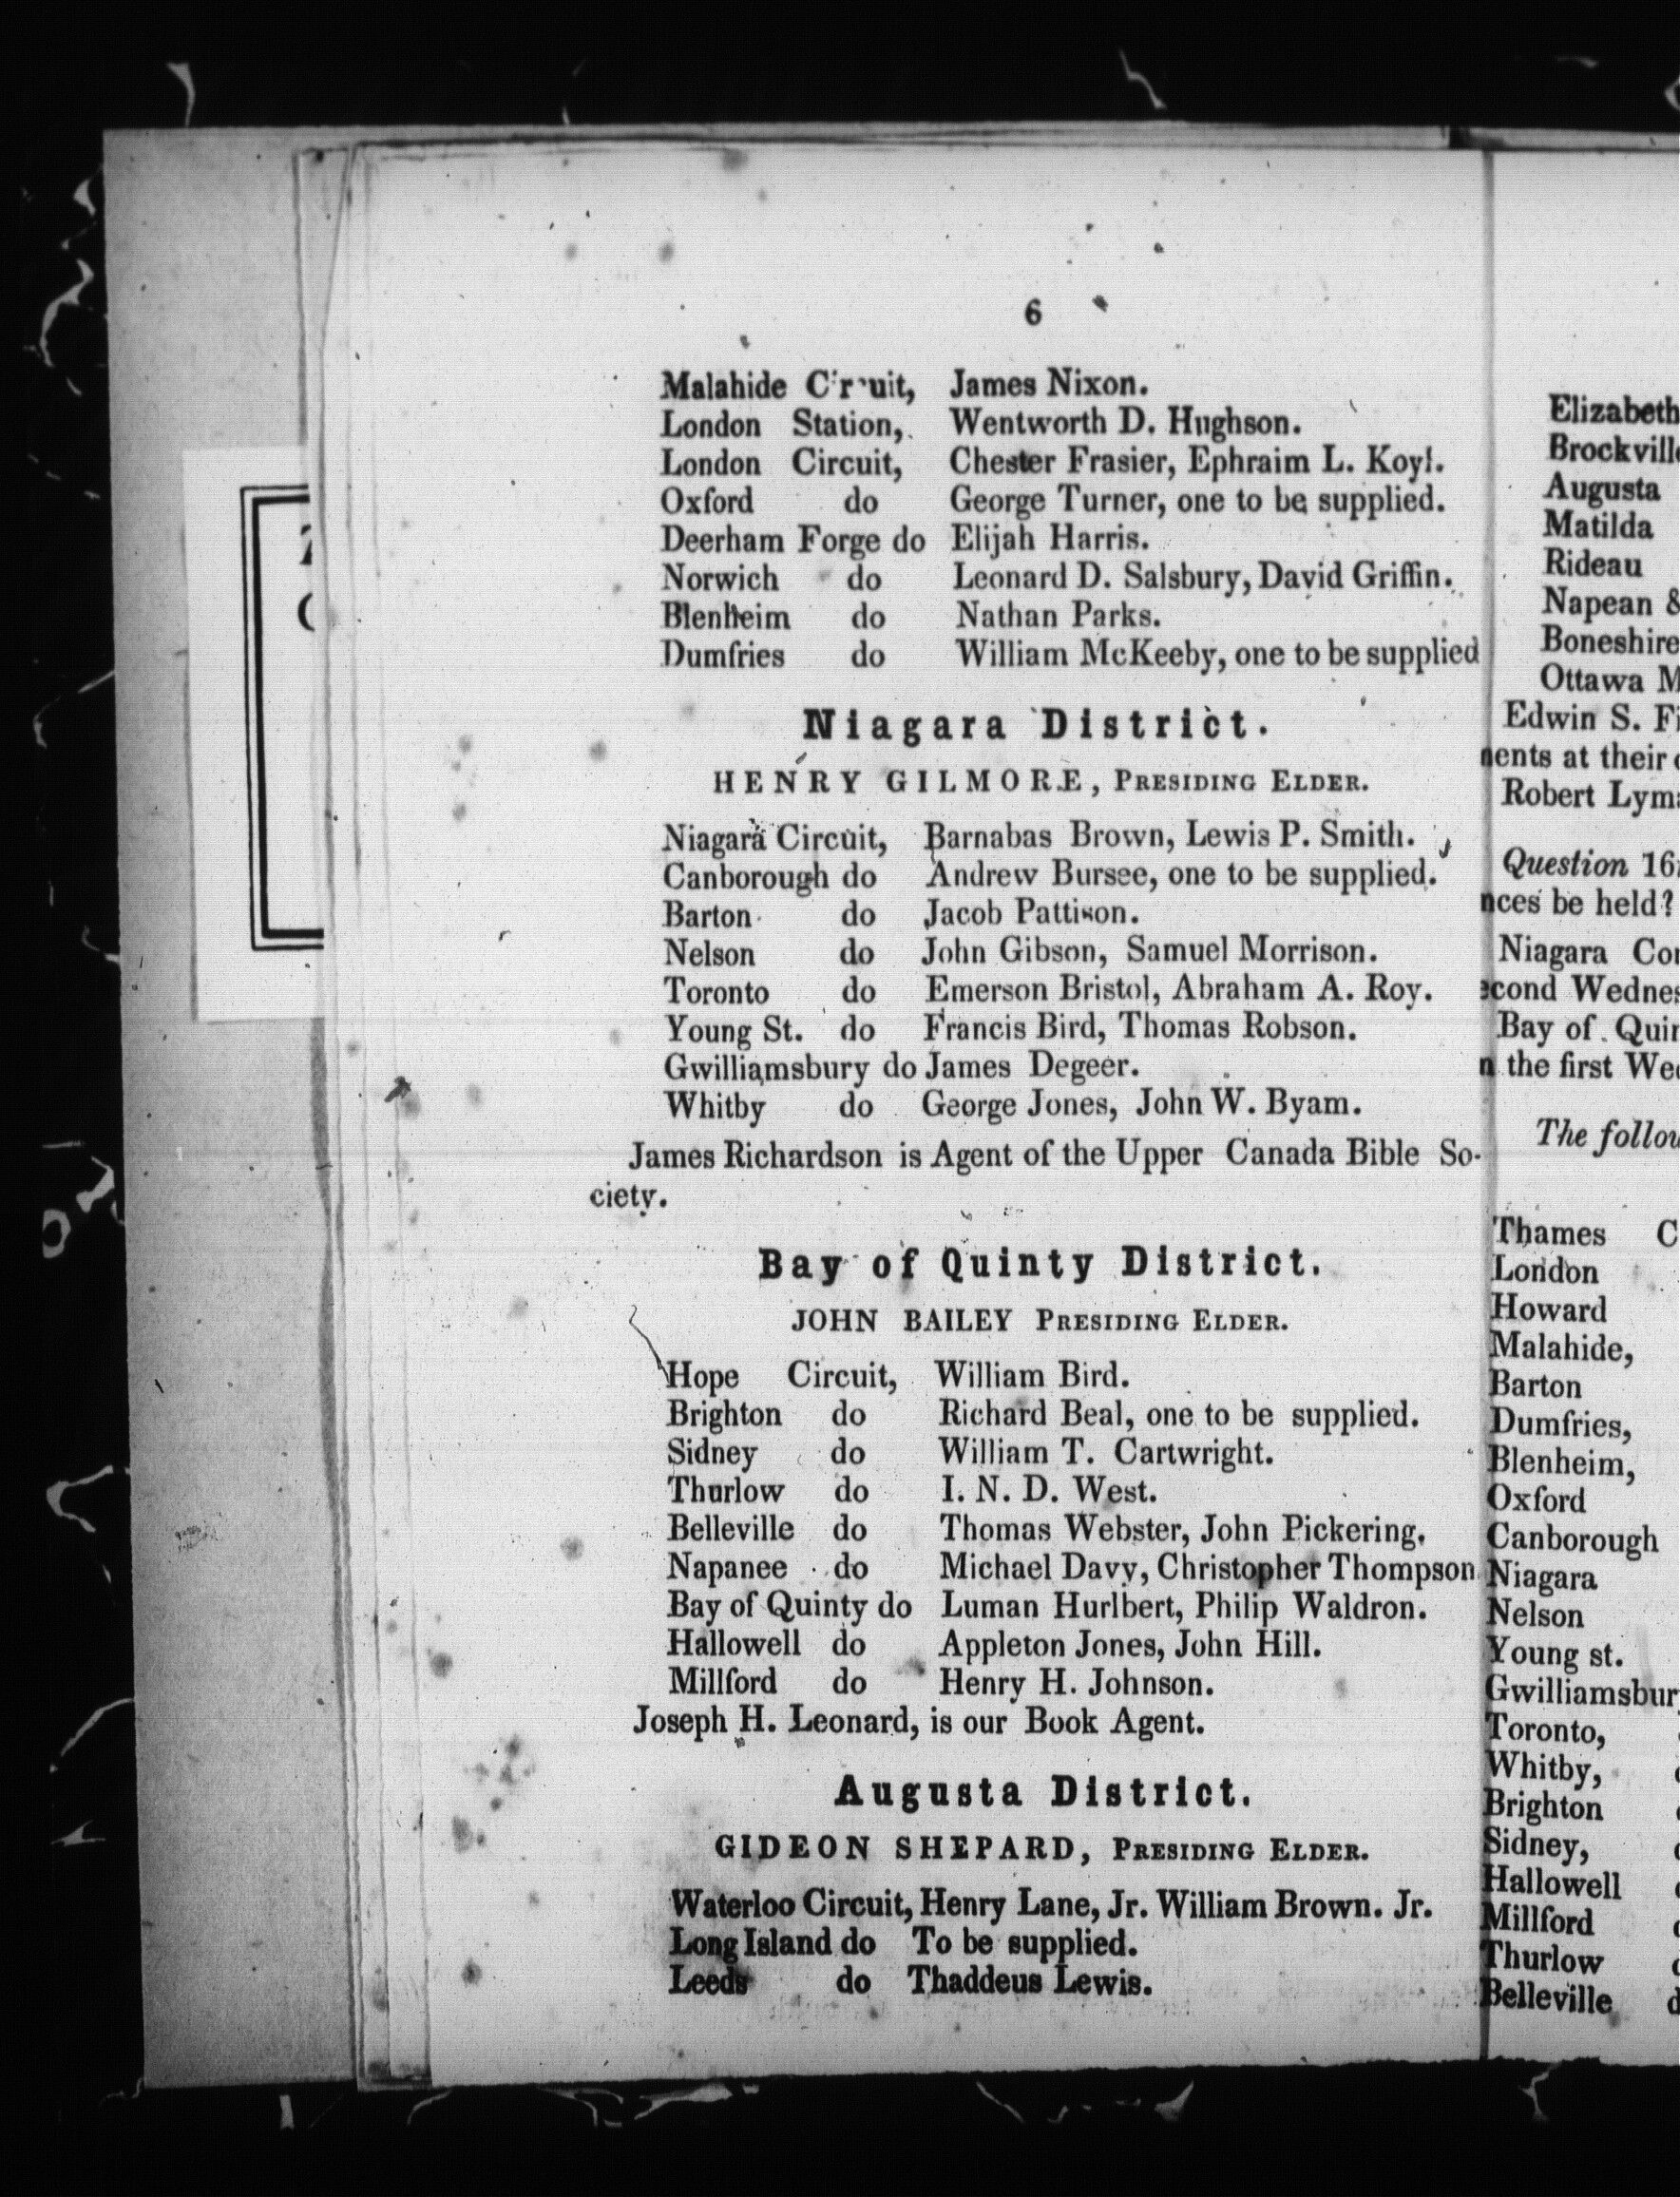 6
Malahide C'r'uit, James Nixon.
London Station, Wentworth D. Hughson.
London Circuit, Chester Frasier, Ephraim L. Koyl.
Oxford do George Turner, one to be supplied.
Deerham Forge do Elijah Harris.
Norwich do Leonard D. Salsbury, David Griffin.
Blenheim do Nathan Parks.
Dumfries do William McKeeby, one to be supplied
Niagara District.
HENRY GILMORE, PRESIDING ELDER.
Niagara Circuit, Barnabas Brown, Lewis P. Smith.
Canborough do Andrew Bursee, one to be supplied.
Barton do Jacob Pattison.
Nelson do John Gibson, Samuel Morrison.
Toronto do Emerson Bristol, Abraham A. Roy.
Young St. do Francis Bird, Thomas Robson.
Gwilliamsbury do James Degeer.
Whitby do George Jones, John W. Byam.
James Richardson is Agent of the Upper Canada Bible So-
ciety.
Bay of Quinty District.
JOHN BAILEY PRESIDING ELDER.
Hope Circuit, William Bird.
Brighton do Richard Beal, one to be supplied.
Sidney do William T. Cartwright.
Thurlow do I. N. D. West.
Belleville do Thomas Webster, John Pickering.
Napanee do Michael Davy, Christopher Thompson
Bay of Quinty do Luman Hurlbert, Philip Waldron.
Hallowell do Appleton Jones, John Hill.
Millford do Henry H. Johnson.
Joseph H. Leonard, is our Book Agent.
Augusta District.
GIDEON SHEPARD, PRESIDING ELDER.
Waterloo Circuit, Henry Lane, Jr. William Brown. Jr.
Long Island do To be supplied.
Leeds do Thaddeus Lewis.
Elizabeth
Brockville
Augusta
Matilda
Rideau
Napean &
Boneshire
Ottawa M
Edwin S. Fi
nents at their
Robert Lym
Question 16
nces be held?
Niagara Con
econd Wednes
Bay of Quin
n the first Wed
The follow
Thames C
London
Howard
Malahide,
Barton
Dumfries,
Blenheim,
Oxford
Canborough
Niagara
Nelson
Young st.
Gwilliamsbur
Toronto,
Whitby,
Brighton
Sidney,
Hallowell
Millford
Thurlow
Belleville d